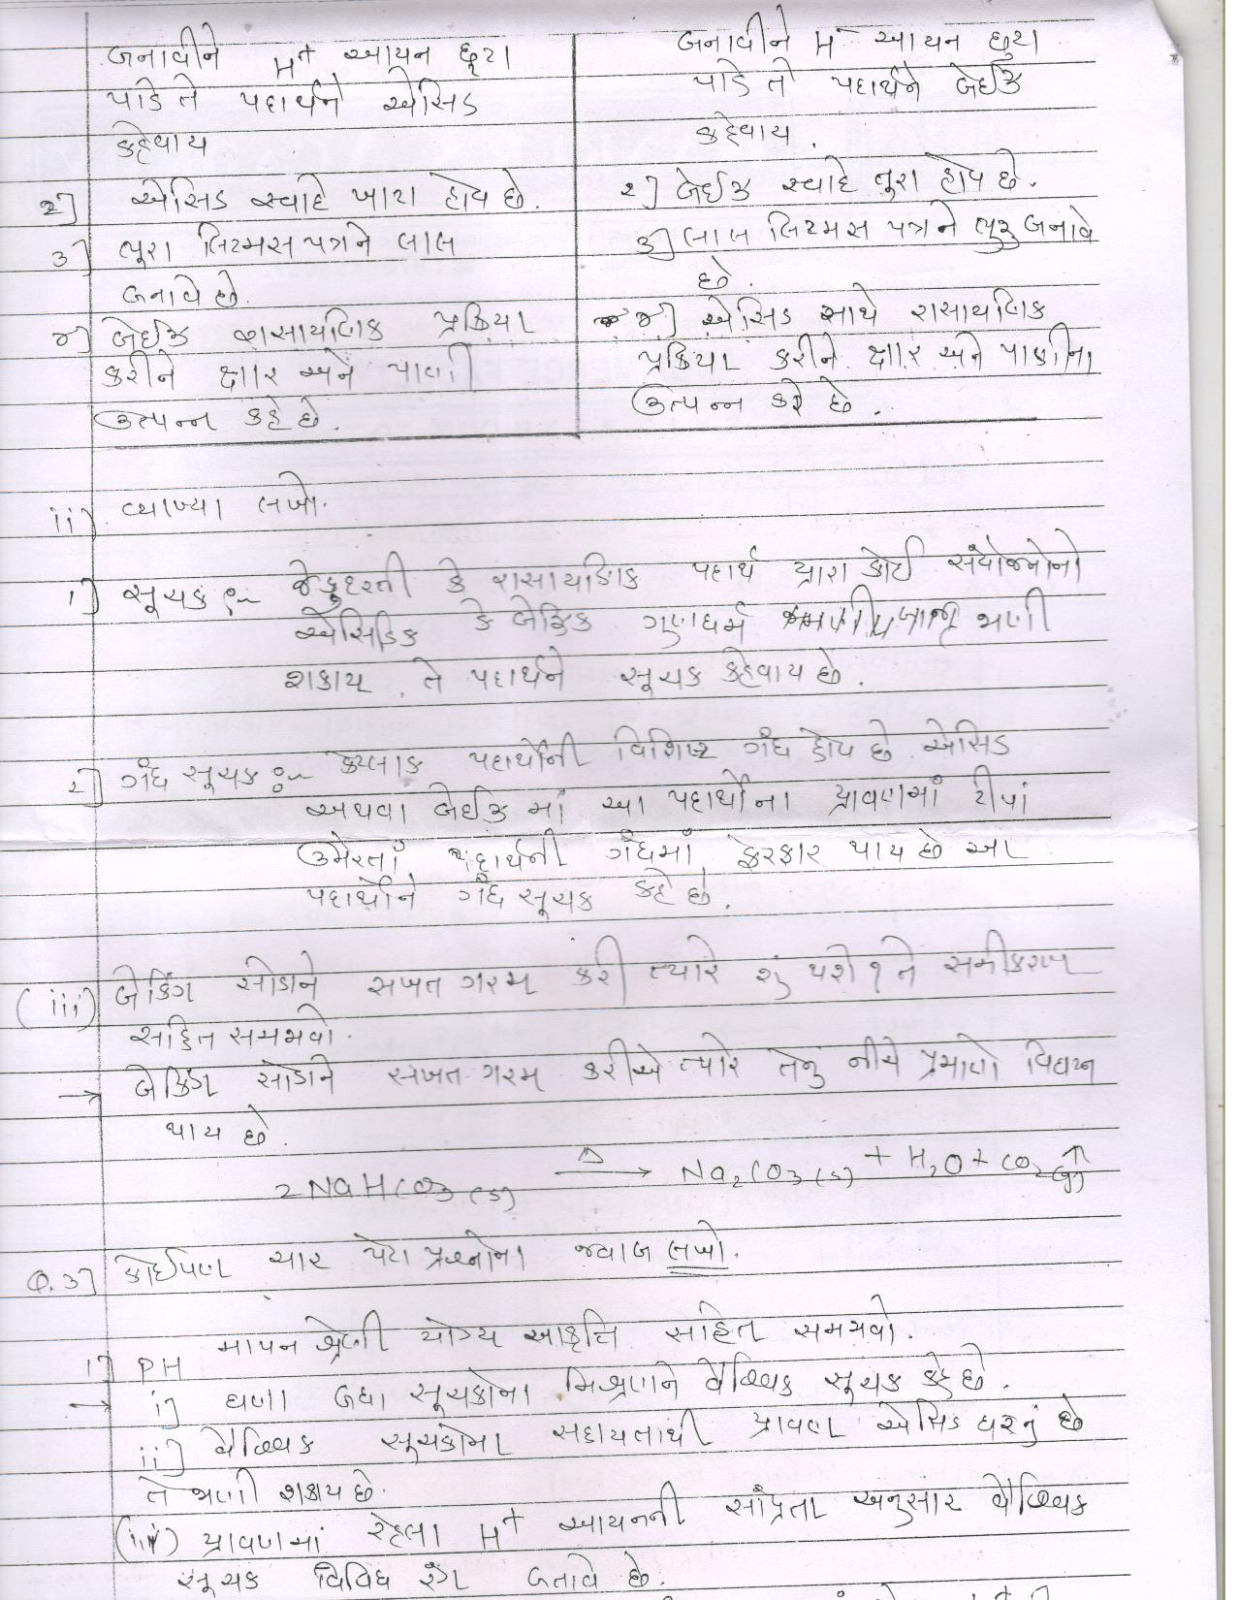 બનાવીને H+ આયન છૂટા
પાડે તે પદાર્થને એસિડ
કહેવાય
૨] એસિડ સ્વાદે ખાટા હોય છે.
૩] ભૂરા લિટમસ પત્રને લાલ
બનાવે છે.
૪] બેઈઝ રાસાયણિક પ્રક્રિયા
કરીને ક્ષાર અને પાણી
ઉત્પન્ન કહે છે.
બનાવીને H- આયન છુટા
પાડે તો પદાર્થને બેઈઝ
કહેવાય.
૨] બેઈઝ સ્વાદે તુરા હોય છે.
૩] લાલ લિટમસ પત્રને ભુરુ બનાવે
છે.
૪] એસિડ સાથે રાસાયણિક
પ્રક્રિયા કરીને ક્ષાર અને પાણીના
ઉત્પન્ન કરે છે.
ii) વ્યાખ્યા લખો.
૧] સૂચક :- જે કુદરતી કે રાસાયણિક પદાર્થ દ્વારા કોઈ સંયોજનોનો
એસિડિક કે બેઝિક ગુણધર્મ જાણી
શકાય તે પદાર્થને સૂચક કહેવાય છે.
૨] ગંધ સૂચક :- કેટલાક પદાર્થોની વિશિષ્ટ ગંધ હોય છે. એસિડ
અથવા બેઈઝ માં આ પદાર્થોના દ્રાવણમાં ટીપાં
ઉમેરતાં પદાર્થની ગંધમાં ફેરફાર થાય છે આ
પદાર્થોને ગંધ સૂચક કહે છે.
(iii) બેકિંગ સોડાને સખત ગરમ કરી ત્યારે શું થશે? તે સમીકરણ
સહિત સમજાવો.
→ બેકિંગ સોડાને સખત ગરમ કરીએ ત્યારે તેનું નીચે પ્રમાણે વિઘટન
થાય છે.
2NaHCO3(s) —Δ→ Na2CO3(s) + H2O + CO2(g)↑
Q.૩] કોઈપણ ચાર પેટા પ્રશ્નોના જવાબ લખો.
૧] PH માપન શ્રેણી યોગ્ય આકૃતિ સહિત સમજાવો.
→ i) ઘણા બધા સૂચકોના મિશ્રણને વૈશ્વિક સૂચક કહે છે.
ii) વૈશ્વિક સૂચકોના સહાયતાથી દ્રાવણ એસિડ ધરનું છે
તે જાણી શકાય છે.
(iii) દ્રાવણમાં રહેલા H+ આયનની સાંદ્રતા અનુસાર વૈશ્વિક
સૂચક વિવિધ રંગ બતાવે છે.